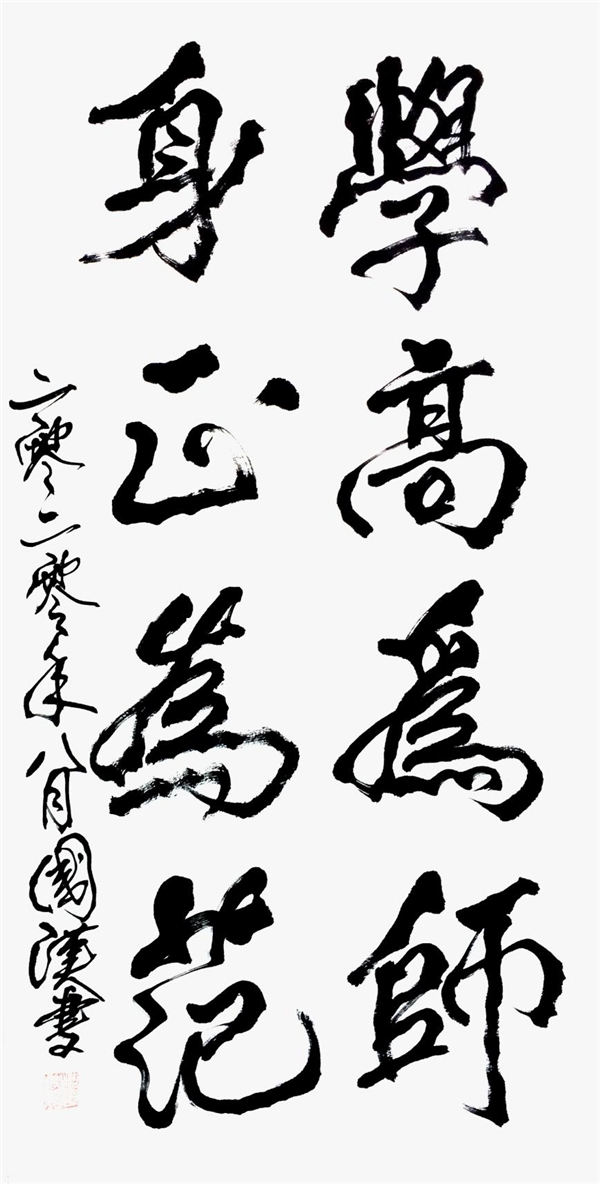 學高爲師
身正為范
二零二零年八月國漢書